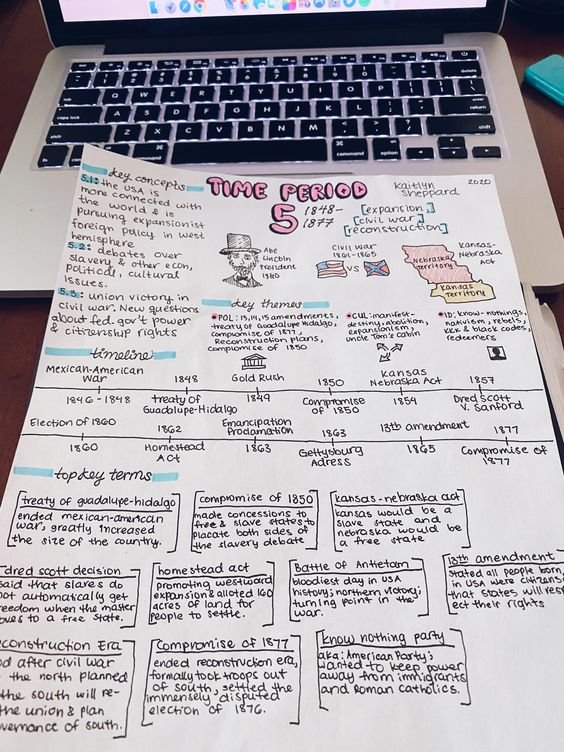 key concepts
5.1: the USA is
more connected with
the world & is
pursuing expansionist
foreign policy in west
hemisphere
5.2: debates over
slavery & other econ,
political, cultural
issues.
5.3: union victory in
civil war. New questions
about fed. gov't power
& citizenship rights
TIME PERIOD
5
1848-
1877
[expansion]
[civil war]
[reconstruction]
Kaitlyn
Sheppard
2020
Abe
Lincoln
President
1860
Civil War
1861-1865
VS
Kansas-
Nebraska
Act
Nebraska
Territory
Kansas
Territory
key themes
POL: 13, 14, 15 amendments,
treaty of Guadalupe Hidalgo,
compromise of 1877,
Reconstruction plans,
compromise of 1850
CUL: manifest-
destiny, abolition,
expansionism,
uncle Tom's cabin
ID: know-nothings,
nativism, rebels,
KKK & black codes,
redeemers
timeline
Mexican-American
War
1846-1848
1848
treaty of
Guadalupe-Hidalgo
Gold Rush
1849
1850
Compromise
of 1850
Kansas
Nebraska Act
1854
1857
Dred Scott
V. Sanford
Election of 1860
1860
1862
Homestead
Act
Emancipation
Proclamation
1863
1863
Gettysburg
Adress
13th amendment
1865
1877
Compromise of
1877
top key terms
treaty of guadalupe-hidalgo
ended mexican-american
war, greatly increased
the size of the country.
compromise of 1850
made concessions to
free & slave states to
placate both sides of
the slavery debate
kansas-nebraska act
kansas would be a
slave state and
nebraska would be
a free state
dred scott decision
said that slaves do
not automatically get
freedom when the master
moves to a free state.
homestead act
promoting westward
expansion & alloted 160
acres of land for
people to settle.
Battle of Antietam
bloodiest day in USA
history; northern victory;
turning point in the
war.
13th amendment
stated all people born
in USA were citizens
that states will resp
ect their rights
econstruction Era
after civil war
the north planned
the south will re-
the union & plan
vernance of south.
Compromise of 1877
ended reconstruction era,
formally took troops out
of south, settled the
immensely disputed
election of 1876.
know nothing party
aka: American Party;
wanted to keep power
away from immigrants
and Roman Catholics.